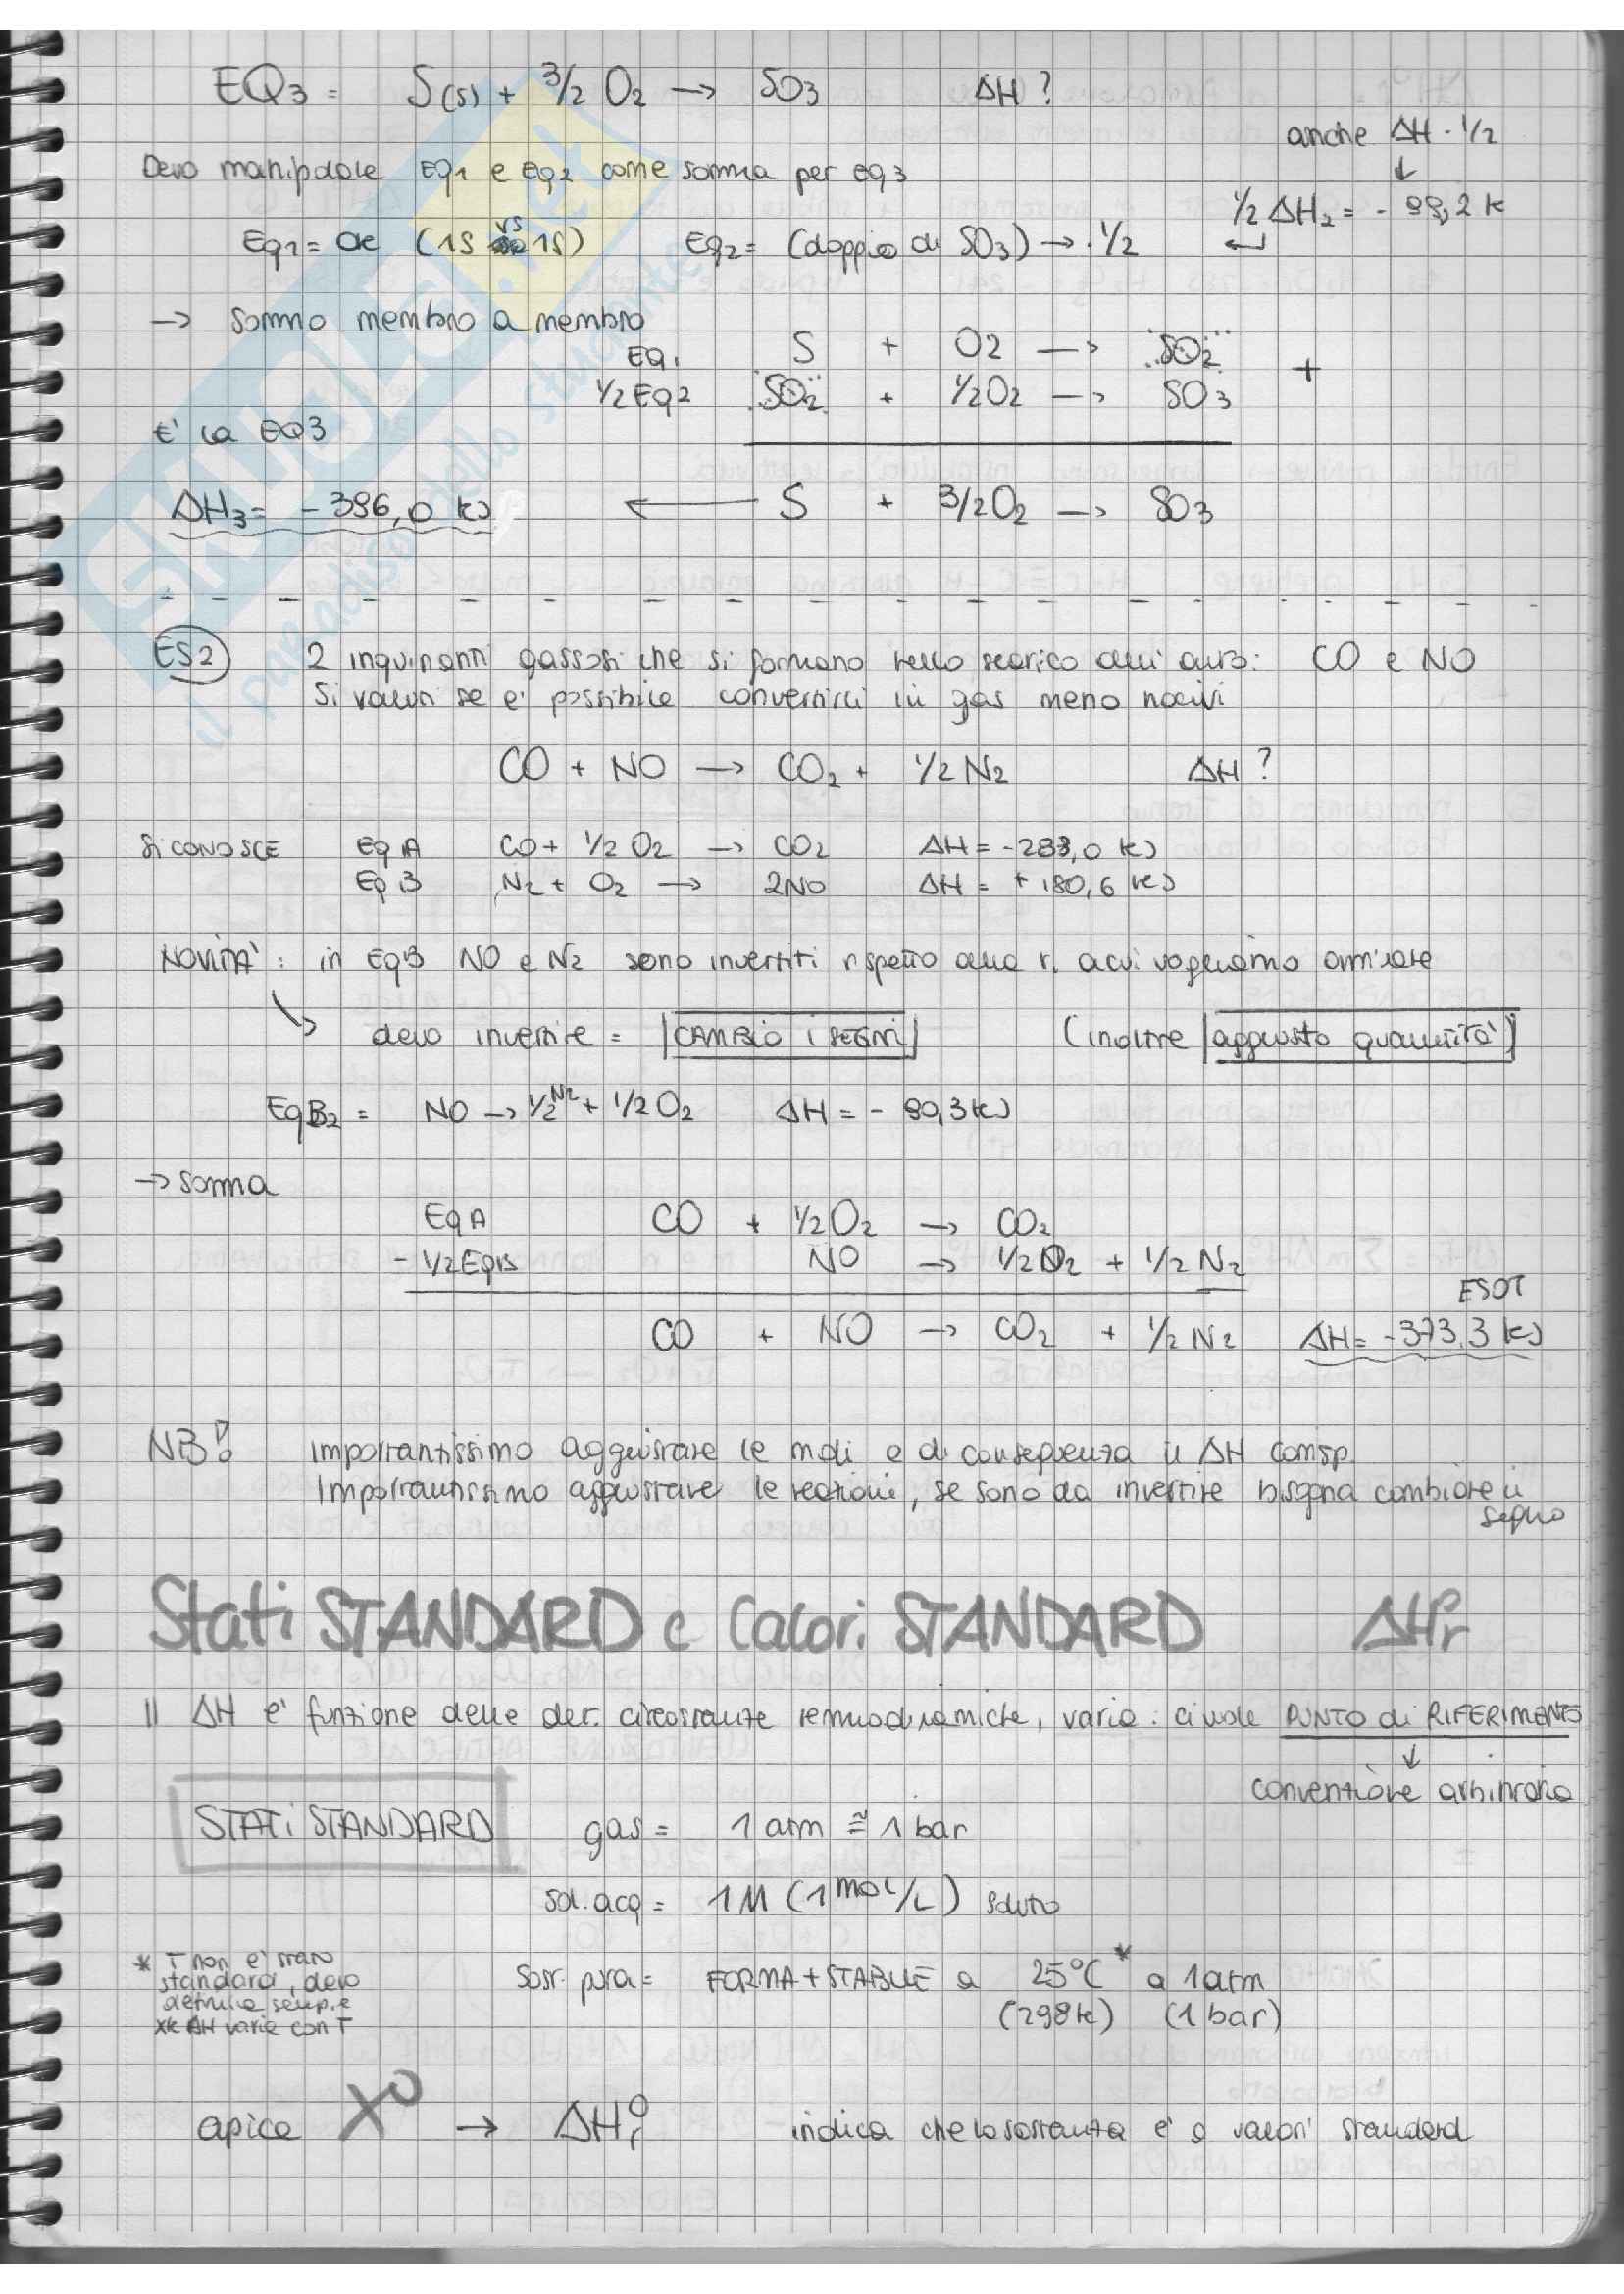 EQ3 = S(s) + 3/2 O2 → SO3 ΔH ?
anche ΔH · 1/2
↓
Devo manipolare EQ1 e EQ2 come somma per eq3
1/2 ΔH2 = - 99,2 k
Eq1 = ok (1S vs 1S) Eq2 = (doppio di SO3) → · 1/2
→ Sommo membro a membro
EQ1 S + O2 → SO2
+
1/2 EQ2 SO2 + 1/2 O2 → SO3
E' la EQ3
ΔH3 = - 396,0 kJ ← S + 3/2 O2 → SO3
ES2 2 inquinanti gassosi che si formano nello scarico delle auto: CO e NO
Si valuti se e' possibile convertirli in gas meno nocivi
CO + NO → CO2 + 1/2 N2 ΔH ?
SI CONOSCE Eq A CO + 1/2 O2 → CO2 ΔH = -283,0 kJ
Eq B N2 + O2 → 2NO ΔH = + 180,6 kJ
NOVITA' : in EqB NO e N2 sono invertiti rispetto alla r. a cui vogliamo arrivare
devo invertire = CAMBIO i SEGNI (inoltre aggiusto quantità)
EqB2 = NO → 1/2 N2 + 1/2 O2 ΔH = - 90,3 kJ
→ somma
Eq A CO + 1/2 O2 → CO2
- 1/2 EqB NO → 1/2 O2 + 1/2 N2
ESOT
CO + NO → CO2 + 1/2 N2 ΔH = -373,3 kJ
NB! Importantissimo aggiustare le moli e di conseguenza il ΔH corrisp.
Importantissimo aggiustare le reazioni, se sono da invertire bisogna cambiare il
segno
Stati STANDARD e Calori STANDARD ΔH°r
Il ΔH e' funzione delle det. circostanze termodinamiche, varia : ci vuole PUNTO di RIFERIMENTO
↓
convenzione arbitraria
STATI STANDARD gas = 1 atm ≅ 1 bar
sol. acq = 1 M (1 mol/L) soluto
* T non e' stato
standard, devo
definirla sempre
xk ΔH varia con T
Sost. pura = FORMA + STABILE a 25°C * a 1 atm
(298 k) (1 bar)
apice X° → ΔH°r indica che la sostanza e' a valori standard
SKUOLA.net
il paradiso dello studente